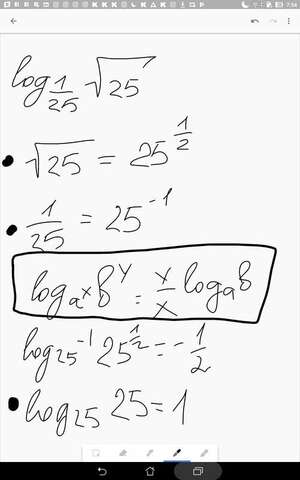 7:54
log_{1/25} √25
• √25 = 25^{1/2}
• 1/25 = 25^{-1}
log_{a^x} b^y = y/x log_a b
log_{25^{-1}} 25^{1/2} = -1/2
• log_{25} 25 = 1